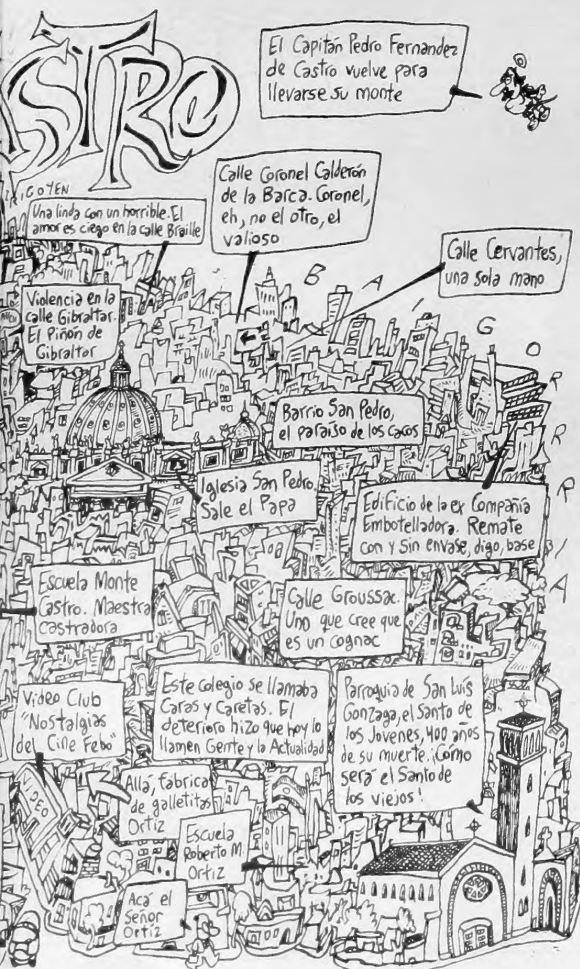 ASTRO
El Capitán Pedro Fernandez
de Castro vuelve para
llevarse su monte
IGOYEN
Una linda con un horrible. El
amor es ciego en la calle Braille
Calle Coronel Calderón
de la Barca. Coronel,
eh, no el otro, el
valioso
Calle Cervantes,
una sola mano
BAIGORRIA
Violencia en la
calle Gibraltar.
El Piñón de
Gibraltar
Barrio San Pedro,
el paraíso de los cacos
Iglesia San Pedro
Sale el Papa
Edificio de la ex Compañía
Embotelladora. Remate
con y sin envase, digo, base
Escuela Monte
Castro. Maestra
Castradora
Calle Groussac.
Uno que cree que
es un cognac
Video Club
"Nostalgias
del Cine Febo"
Este colegio se llamaba
Caras y Caretas. El
deterioro hizo que hoy lo
llamen Gente y la Actualidad
Parroquia de San Luís
Gonzaga, el Santo de
los Jovenes, 400 años
de su muerte. ¡Cómo
será el Santo de
los viejos!
Allá, fabrica
de galletitas
Ortiz
VIDEO
Escuela
Roberto M.
Ortiz
Acá el
Señor
Ortiz